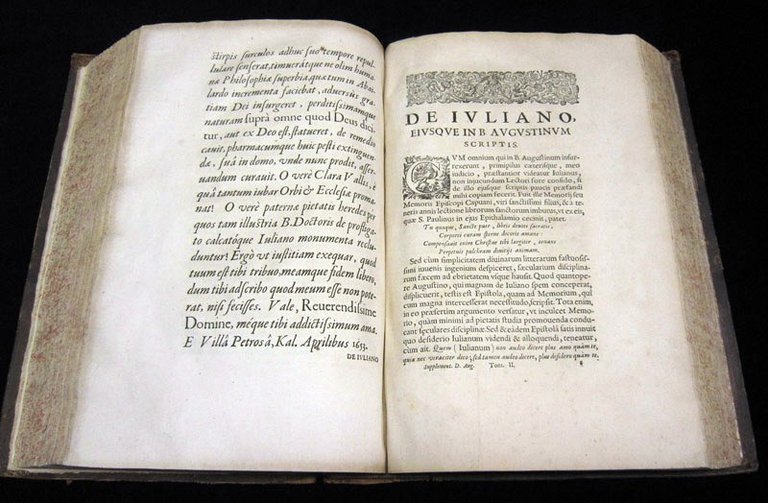 stirpis surculos adhuc suo tempore repul
lulare senserat, timuerátque ne olim huma
næ Philosophiæ superbia, quæ tum in Abai
lardo incrementa faciebat, adversùs gra
tiam Dei insurgeret, perditissimamque
naturam suprà omne quod Deus dici
tur, aut ex Deo est, statueret, de remedio
cauit, pharmacumque huic pesti extinguen
dæ, suâ in domo, vnde nunc prodit, asser
uandum curauit. O verè Clara Vallis, è
quâ tantum iubar Orbi & Ecclesiæ proma
nat! O verè paterna pietatis heredes per
quos tam illustria B. Doctoris de profliga
to calcatóque Iuliano monumenta reclu
duntur! Ergò vt iustitiam exequar, quod
tuum est tibi tribuo, meamque fidem libero,
dum tibi adscribo quod meum esse non pote
rat, nisi fecisses. Vale, Reuerendissime
Domine, méque tibi addictissimum ama.
E Villâ Petrosâ, Kal. Aprilibus 1653.
DE IVLIANO
DE IVLIANO,
EIVSQVE IN B. AVGVSTINVM
SCRIPTIS.
CVM omnium qui in B. Augustinum insur
rexerunt, primipilus cæterisque, meo
iudicio, præstantior videatur Iulianus,
non iniucundum Lectori fore confido, si
de illo ejusque scriptis paucis præfandi
mihi copiam fecerit. Fuit ille Memoris seu
Memorii Episcopi Capuani, viri sanctissimi filius, & à te
neris annis lectione librorum sanctorum imbutus, vt ex eis,
quæ S. Paulinus in ejus Epithalamio cecinit, patet.
Tu quoque, Sancte puer, libris devote sacratis,
Corporei curam sperne decoris amans:
Compensavit enim Christus tibi largiter, ornans
Perpetuis pulchram divitiis animam.
Sed cùm simplicitatem divinarum litterarum fastuosis
simi iuuenis ingenium despiceret, sæcularium disciplina
rum fæcem ad ebrietatem vsque hausit. Quod quantope
re Augustino, qui magnam de Iuliano spem conceperat,
displicuerit, testis est Epistola, quam ad Memorium, qui
cum magna intercesserat necessitudo, scripsit. Tota enim,
in eo præsertim argumento versatur, vt inculcet Memo
rio, quàm minimi ad pietatis studia promouenda condu
cant sæculares disciplinæ: Sed & eâdem Epistolâ satis innuit
quo desiderio Iulianum videndi & alloquendi, teneatur,
cum ait. Quem (Iulianum) non audeo dicere plus amo quàm te,
quia nec veraciter dico; sed tamen audeo dicere, plus desidero quàm te,
Supplement. D. Aug. Tom. II.